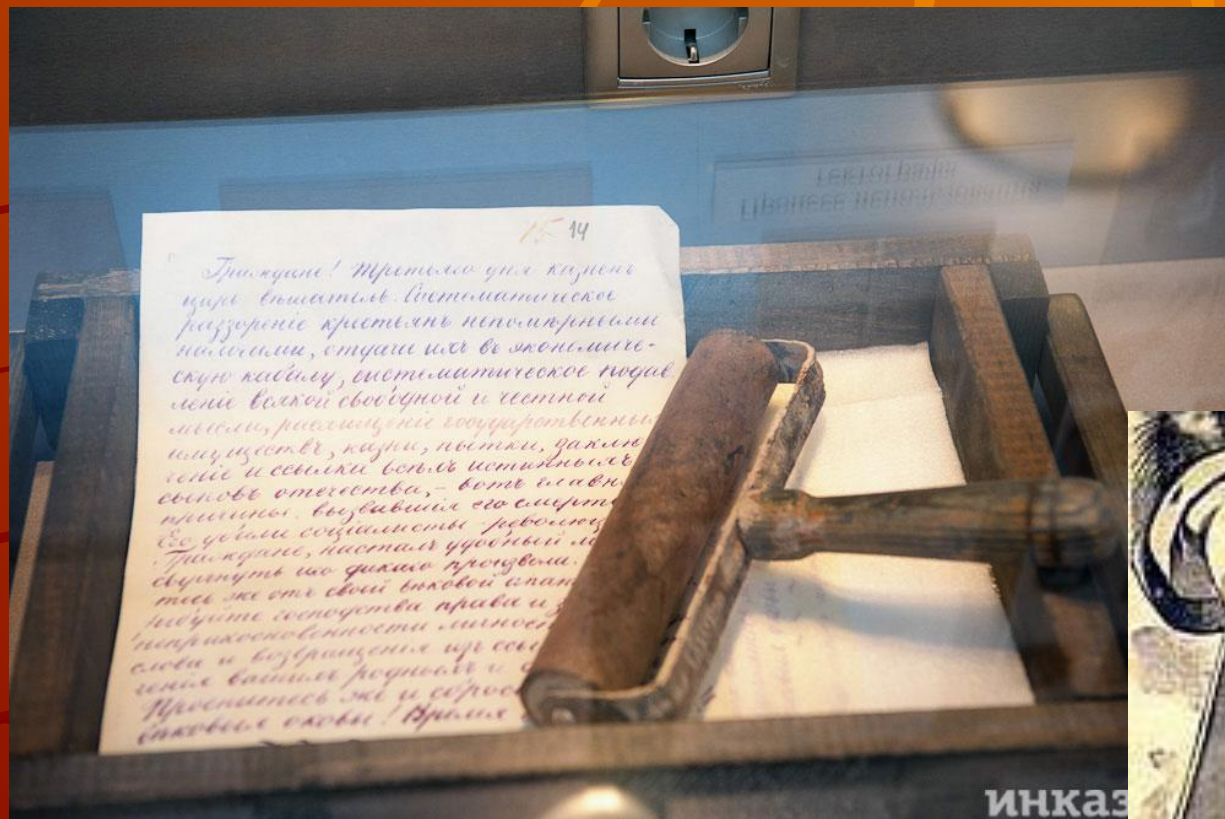 14
Граждане! Третьяго дня казненъ
царь вѣшатель. Систематическое
раззореніе крестьянъ непомѣрными
налогами, отдачи ихъ въ экономиче-
скую кабалу, систематическое подав
леніе всякой свободной и честной
мысли, расхищеніе государственныхъ
имуществъ, казни, пытки, заклю
ченіе и ссылки всѣхъ истинныхъ
сыновъ отечества, – вотъ главн
причины, вызвавшія его смерть
Его убили соціалисты революц
Граждане, насталъ удобный м
свергнуть иго дикаго произвола.
тесь же отъ своей вѣковой апат
требуйте господства права и
неприкосновенности личнос
слова и возвращенія изъ ссы
ченія вашихъ родныхъ и
Проснитесь же и сброс
вѣковыя оковы! Время
Процесс использования
гектографа
инказ